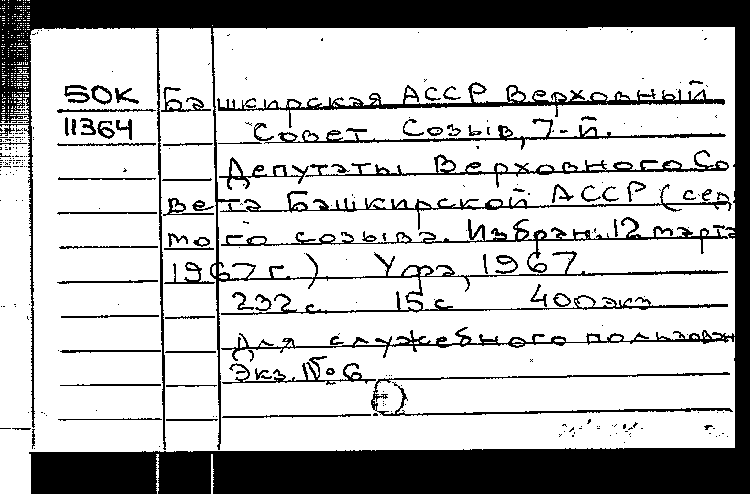 50К Башкирская АССР Верховный
11364 Совет Созыв, 7-й.
Депутаты Верховного Со-
вета Башкирской АССР (седь
мого созыва. Избран. 12 марта
1967 г.). Уфа, 1967.
232 с. 15 с 400 экз
Для служебного пользован
Экз. № 6